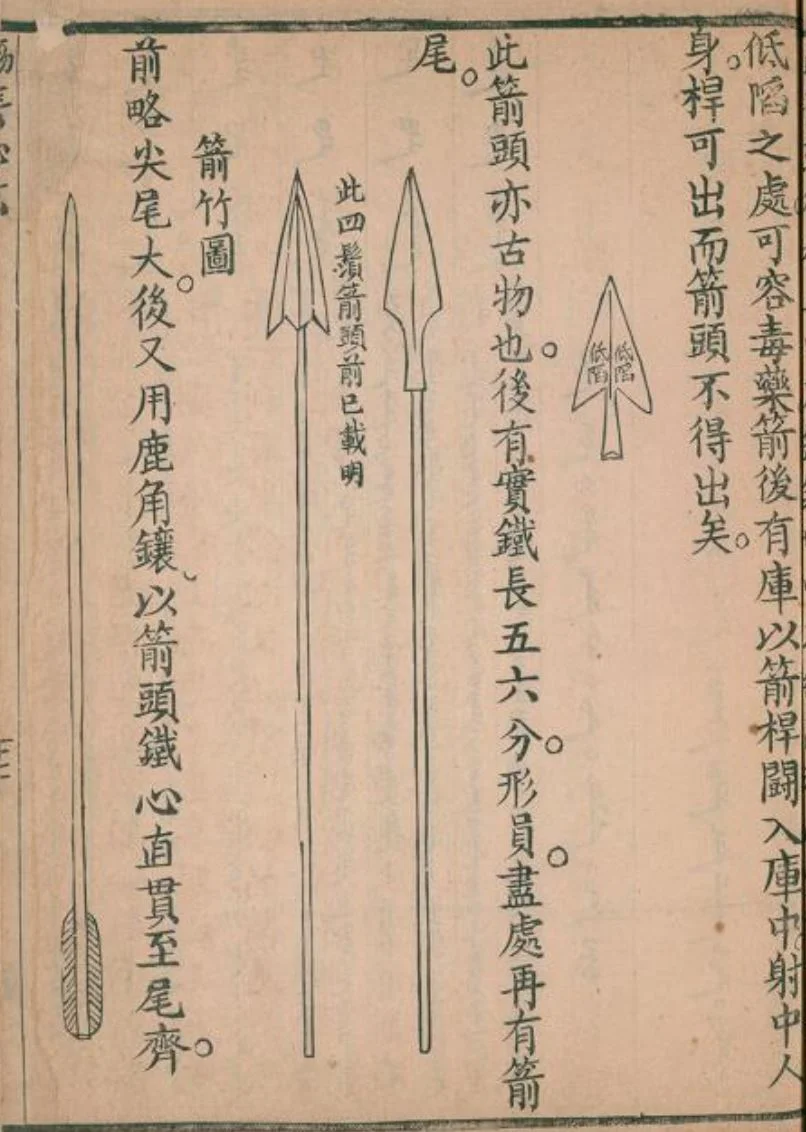 低陷之處可容毒藥箭後有庫以箭桿鬪入庫中射中人
身。桿可出而箭頭不得出矣。
低陷
低陷
此箭頭亦古物也。後有實鐵長五六分。形員。盡處再有箭
尾。
此四鬚箭頭前已載明
箭竹圖
前略尖尾大。後又用鹿角鑲、以箭頭鐵心直貫至尾齊。